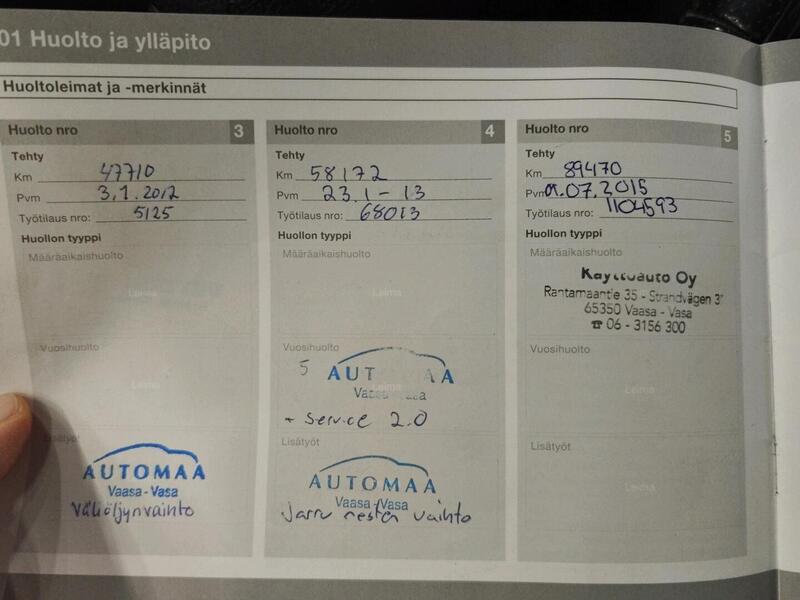 01 Huolto ja ylläpito
Huoltoleimat ja -merkinnät
Huolto nro 3
Tehty
Km 47710
Pvm 3.1.2012
Työtilaus nro: 5125
Huollon tyyppi
Määräaikaishuolto
Leima
Vuosihuolto
Leima
Lisätyöt
AUTOMAA
Vaasa-Vasa
Väliöljynvaihto
Huolto nro 4
Tehty
Km 58172
Pvm 23.1-13
Työtilaus nro: 68013
Huollon tyyppi
Määräaikaishuolto
Leima
Vuosihuolto
5 AUT AA
Leima
Vaasa-Vasa
+ Service 2.0
Lisätyöt
AUTOMAA
Vaasa-Vasa
Jarru nesteen vaihto
Huolto nro 5
Tehty
Km 89470
Pvm 01.07.2015
Työtilaus nro: 1104593
Huollon tyyppi
Määräaikaishuolto
Käyttöauto Oy
Rantamaantie 35 - Strandvägen 3
65350 Vaasa - Vasa
☎ 06 - 3156 300
Vuosihuolto
Leima
Lisätyöt
Leima